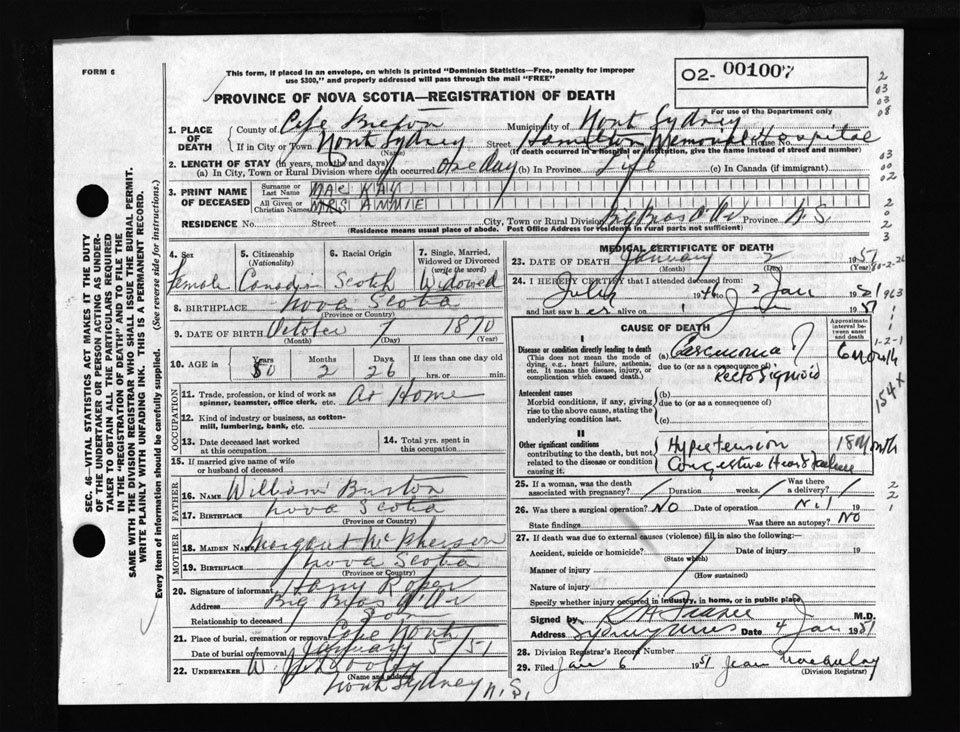 FORM 6
This form, if placed in an envelope, on which is printed "Dominion Statistics—Free, penalty for improper
use $300," and properly addressed will pass through the mail "FREE"
02- 001007
PROVINCE OF NOVA SCOTIA—REGISTRATION OF DEATH
For use of the Department only
1. PLACE OF DEATH County of Cape Breton Municipality of North Sydney
If in City or Town North Sydney Street Hamilton Memorial Hospital House No.
(Name) (If death occurred in a hospital or institution, give the name instead of street and number)
2. LENGTH OF STAY (in years, months and days)
(a) In City, Town or Rural Division where death occurred one day (b) In Province life (c) In Canada (if immigrant)
3. PRINT NAME OF DECEASED Surname or Last Name MAC KAY
All Given or Christian Names MRS ANNIE
RESIDENCE No. Street City, Town or Rural Division Big Bras d'Or Province N.S.
(Residence means usual place of abode. Post Office Address for residents in rural parts not sufficient)
4. Sex Female
5. Citizenship (Nationality) Canadian
6. Racial Origin Scotch
7. Single, Married, Widowed or Divorced (write the word) Widowed
8. BIRTHPLACE Nova Scotia
(Province or Country)
9. DATE OF BIRTH October 7 1870
(Month) (Day) (Year)
10. AGE in Years 80 Months 2 Days 26 If less than one day old
hrs. or min.
OCCUPATION
11. Trade, profession, or kind of work as spinner, teamster, office clerk, etc. At Home
12. Kind of industry or business, as cotton-mill, lumbering, bank, etc.
13. Date deceased last worked at this occupation
14. Total yrs. spent in this occupation
15. If married give name of wife or husband of deceased
FATHER
16. NAME William Burton
17. BIRTHPLACE Nova Scotia
(Province or Country)
MOTHER
18. MAIDEN NAME Margaret McPherson
19. BIRTHPLACE Nova Scotia
(Province or Country)
20. Signature of informant Harry Roper
Address Big Bras d'Or
Relationship to deceased Son
21. Place of burial, cremation or removal Cape North
Date of burial or removal January 5/51
22. UNDERTAKER W.
(Name and address)
North Sydney N.S.
MEDICAL CERTIFICATE OF DEATH
23. DATE OF DEATH January 2 1951
(Month) (Day) (Year)
24. I HEREBY CERTIFY that I attended deceased from:
July 1946 to 2 Jan 1951
and last saw her alive on 1 J 1951
CAUSE OF DEATH
Approximate interval between onset and death
I
Disease or condition directly leading to death
(This does not mean the mode of dying, e.g., heart failure, asthenia, etc. It means the disease, injury, or complication which caused death.)
(a) Carcinoma ? 6 month
due to (or as a consequence of) Recto Sigmoid
Antecedent causes
Morbid conditions, if any, giving rise to the above cause, stating the underlying condition last.
(b)
due to (or as a consequence of)
(c)
II
Other significant conditions
contributing to the death, but not related to the disease or condition causing it.
Hypertension 18 Month
Congestive Heart Failure
25. If a woman, was the death associated with pregnancy? Duration weeks. Was there a delivery?
26. Was there a surgical operation? NO Date of operation Nil 19
State findings Was there an autopsy? NO
27. If death was due to external causes (violence) fill in also the following:—
Accident, suicide or homicide? Date of injury 19
(State which)
Manner of injury
(How sustained)
Nature of injury
Specify whether injury occurred in industry, in home, or in public place
Signed by M.D.
Address Sydney Mines Date 4 Jan 1951
28. Division Registrar's Record Number
29. Filed Jan 6 1951 Jean
(Division Registrar)
SEC. 46—VITAL STATISTICS ACT MAKES IT THE DUTY
OF THE UNDERTAKER OR PERSON ACTING AS UNDER-
TAKER TO OBTAIN ALL THE PARTICULARS REQUIRED
IN THE "REGISTRATION OF DEATH" AND TO FILE THE
SAME WITH THE DIVISION REGISTRAR WHO SHALL ISSUE THE BURIAL PERMIT.
WRITE PLAINLY WITH UNFADING INK. THIS IS A PERMANENT RECORD.
Every item of information should be carefully supplied. (See reverse side for instructions.)
2
03
03
08
03
00
02
2
0
2
3
80-2-26
963
1
1
1-2-1
154X
2
2
1